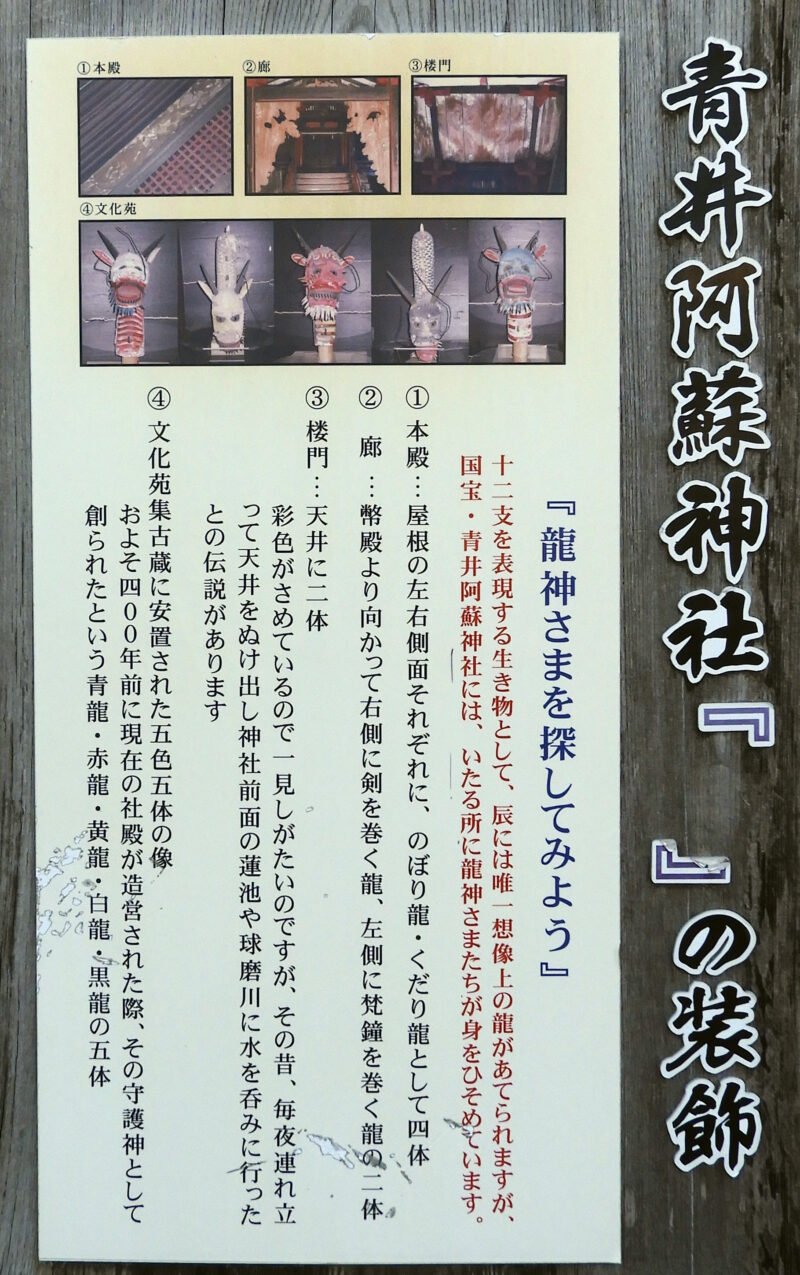 青井阿蘇神社『　』の装飾
①本殿
②廊
③楼門
④文化苑
『龍神さまを探してみよう』
十二支を表現する生き物として、辰には唯一想像上の龍があてられますが、
国宝・青井阿蘇神社には、いたる所に龍神さまたちが身をひそめています。
①本殿…屋根の左右側面それぞれに、のぼり龍・くだり龍として四体
②廊…幣殿より向かって右側に剣を巻く龍、左側に梵鐘を巻く龍の二体
③楼門…天井に二体
彩色がさめているので一見しがたいのですが、その昔、毎夜連れ立
って天井をぬけ出し神社前面の蓮池や球磨川に水を呑みに行った
との伝説があります
④文化苑集古蔵に安置された五色五体の像
およそ四００年前に現在の社殿が造営された際、その守護神として
創られたという青龍・赤龍・黄龍・白龍・黒龍の五体